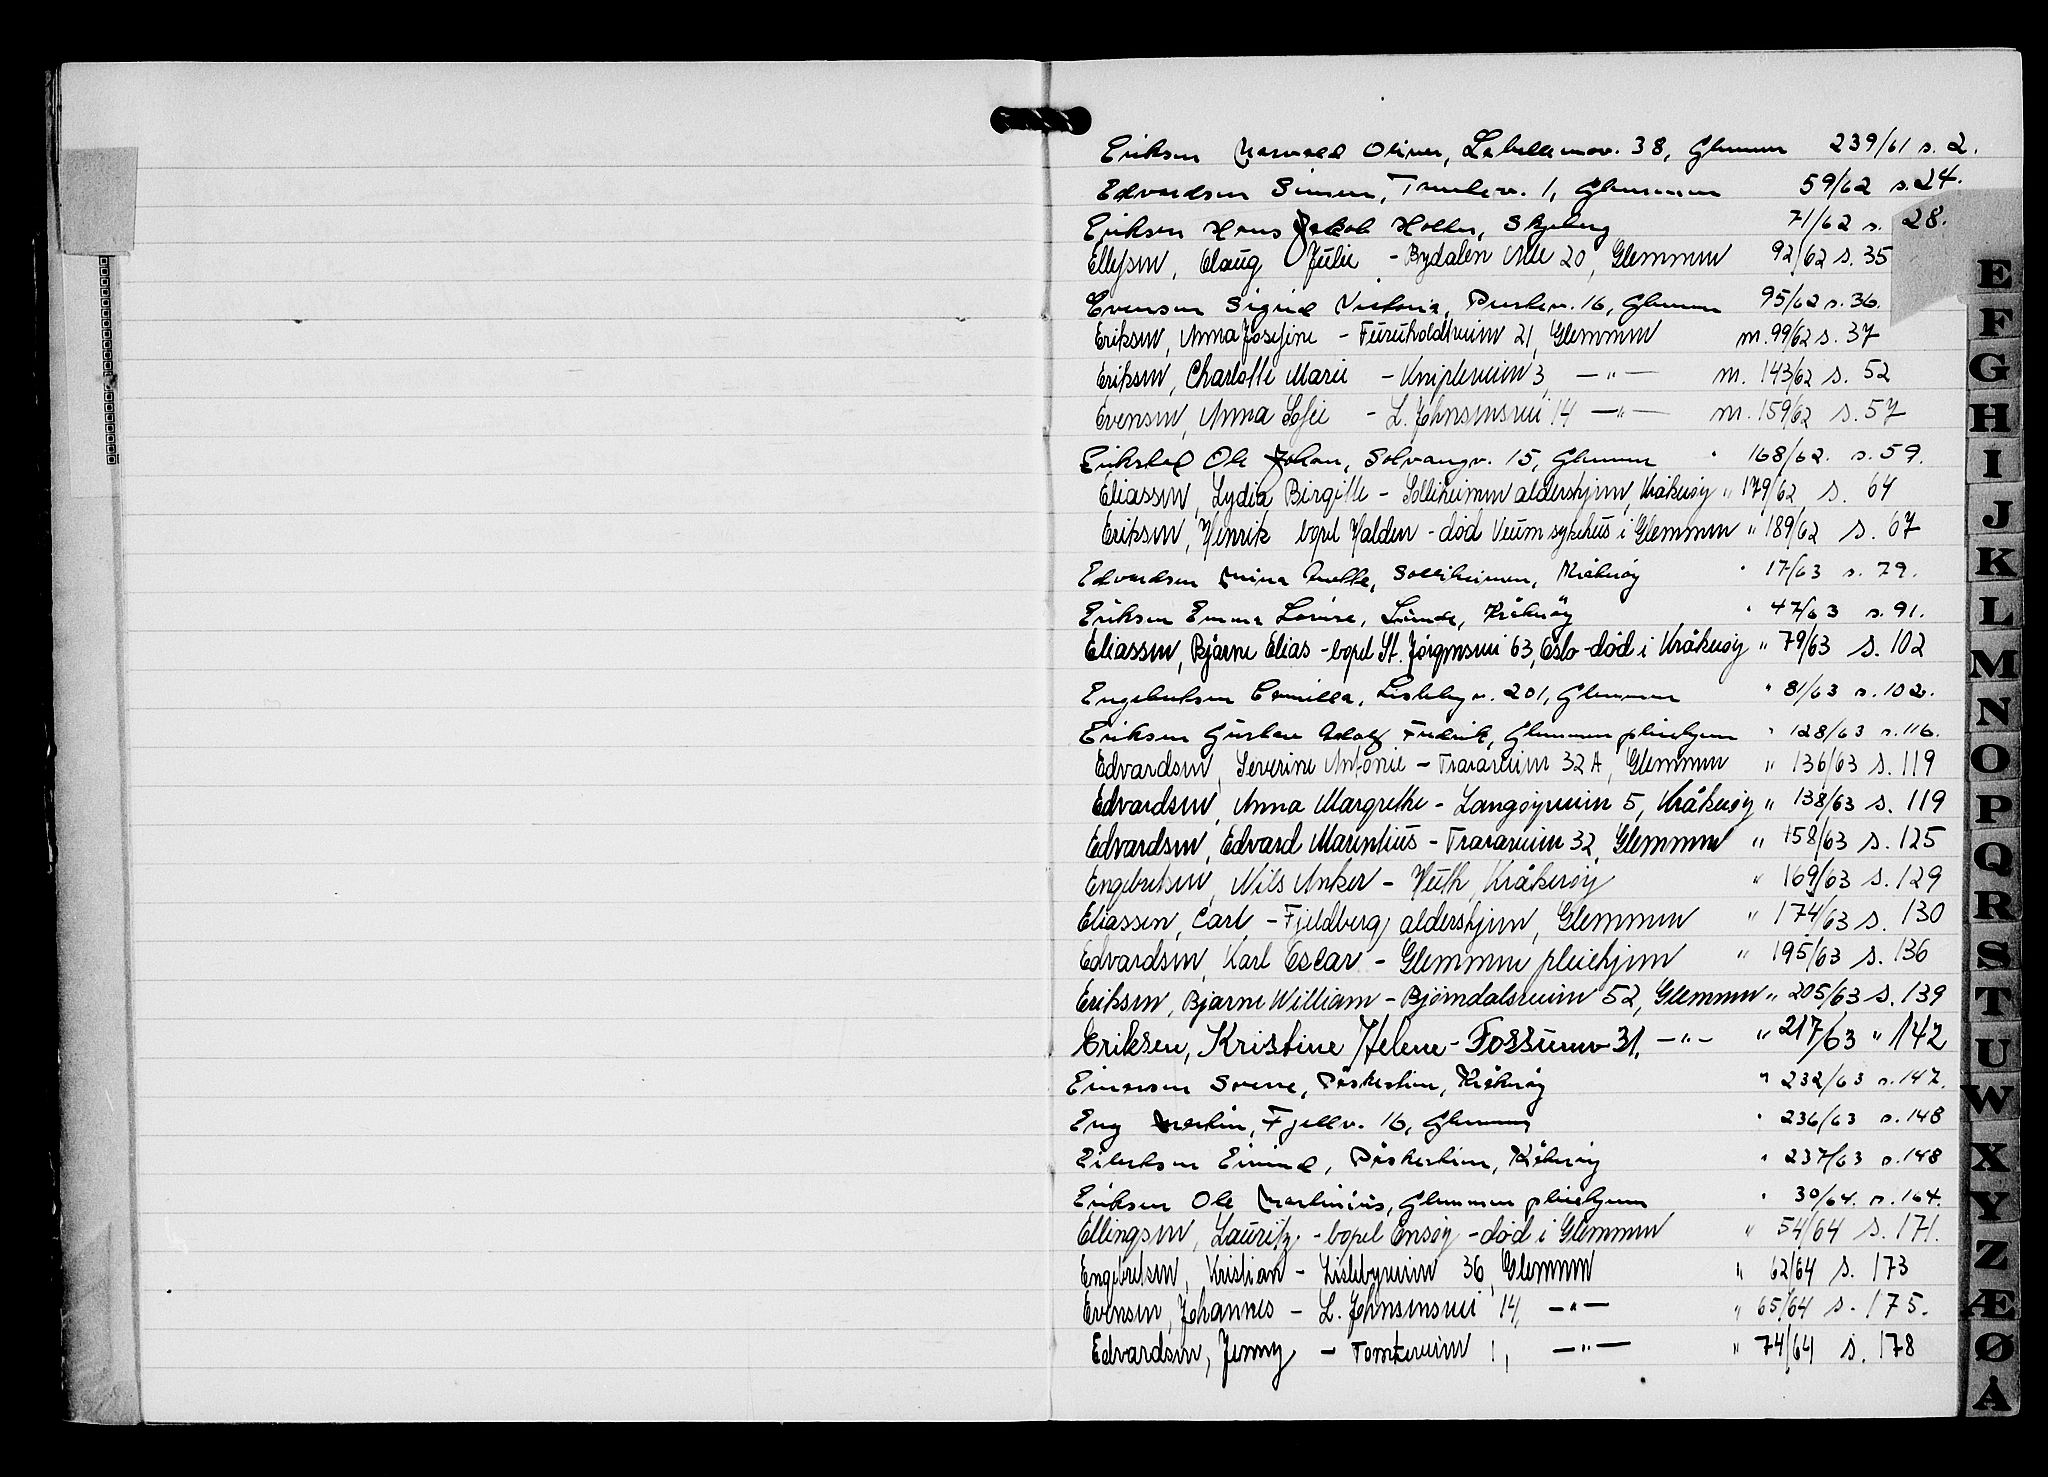 Eriksen Harvald Oliver, Labellamov. 38, Glemmen 239/61 s. 2.
Edvardsen Simen, Trunhev. 1, Glemmen 59/62 s. 24.
Eriksen Hans Jakob Holter, Skjeberg 71/62 s. 28.
Ellefsen, Olaug Julie - Bydalen Alle 20, Glemmen 92/62 s. 35
Evensen Sigrid Victoria, Prestev. 16, Glemmen 95/62 s. 36.
Eriksen, Anna Josefine - Furuholdtveien 21, Glemmen m. 99/62 s. 37
Eriksen, Charlotte Marie - Knipleveien 3, —"— m. 143/62 s. 52
Evensen, Anna Sofie - L. Johnsensvei 14 —"— m. 159/62 s. 57
Erikstad Ole Johan, Solvangv. 15, Glemmen " 168/62. s. 59.
Eliassen, Lydia Birgitte - Solliheimen aldershjem, Kråkerøy " 179/62 s. 64
Eriksen, Henrik bopel Halden - død Veum sykehus i Glemmen " 189/62 s. 67
Edvardsen Anna, Solliheimen, Kråkerøy " 17/63 s. 79.
Eriksen Emma Lovise, Lunde, Kråkerøy " 47/63 s. 91.
Eliassen, Bjarne Elias - bopel St. Jørgensvei 63, Oslo - død i Kråkerøy " 79/63 s. 102
Engebretsen Camilla, Lislebyv. 201, Glemmen " 81/63 s. 102.
Eriksen Gustav Adolf Fredrik, Glemmen pleiehjem " 128/63 s. 116.
Edvardsen, Severine Antonie - Traraveien 32 A, Glemmen " 136/63 s. 119
Edvardsen, Anna Margrethe - Langøyveien 5, Kråkerøy " 138/63 s. 119
Edvardsen, Edvard Marentius - Traraveien 32, Glemmen " 158/63 s. 125
Engebretsen, Nils Anker - Huth, Kråkerøy " 169/63 s. 129
Eliassen, Carl - Fjeldberg aldershjem, Glemmen " 174/63 s. 130
Edvardsen, Karl Oscar - Glemmen pleiehjem " 195/63 s. 136
Eriksen, Bjarne William - Bjørndalsveien 52, Glemmen " 205/63 s. 139
Eriksen, Kristine Helene - Fossumv 31. —"— " 217/63 " 142
Sverre, Kråkerøy " 232/63 s. 147.
Eng Martin, Fjellv. 16, Glemmen " 236/63 s. 148
Eilertsen Eivind, Kråkerøy " 237/63 s. 148
Eriksen Ole Martinius, Glemmen pleiehjem " 30/64. s. 164.
Ellingsen, Lauritz - bopel Onsøy - død i Glemmen " 54/64 s. 171.
Engebretsen, Kristian - Lislebyveien 36, Glemmen " 62/64 s. 173
Evensen, Johannes - L. Johnsensvei 14, —"— " 65/64 s. 175.
Edvardsen, Jenny - Tomteveien 1, —"— " 74/64 s. 178
E
F
G
H
I
J
K
L
M
N
O
P
Q
R
S
T
U
W
X
Y
Z
Æ
Ø
Å